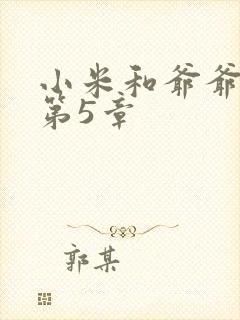 小米和爷爷
第5章
郭某